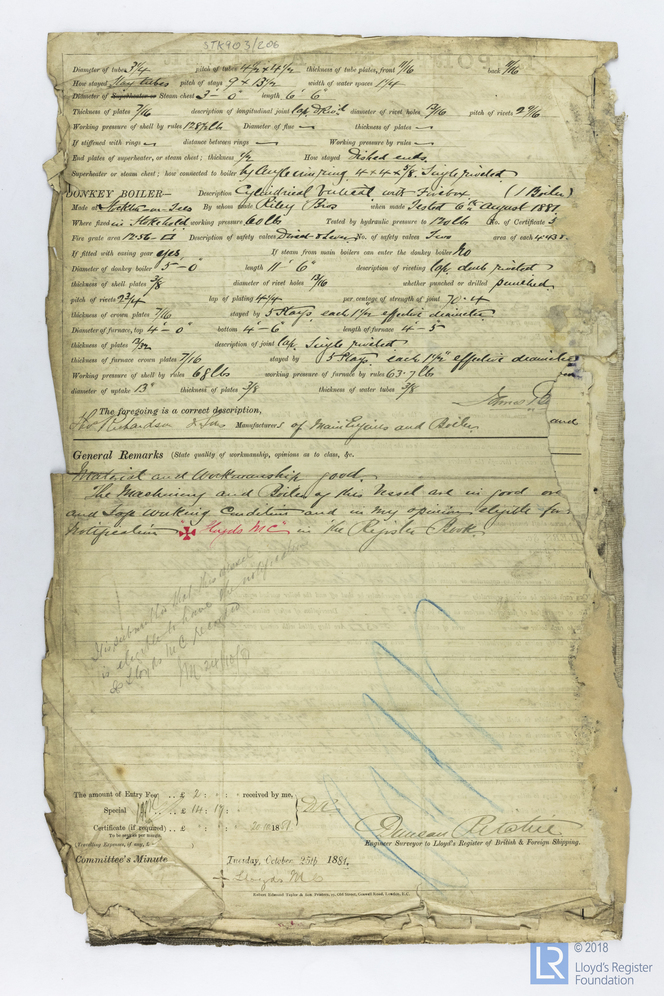 STK903/206
Diameter of tubes 3 1/4 pitch of tubes 4 1/2 x 4 1/2 thickness of tube plates, front 11/16 back 11/16
How stayed Stay tubes pitch of stays 9 x 13 1/2 width of water spaces 1 1/4
Diameter of Superheater or Steam chest 3' 0" length 6' 6"
Thickness of plates 7/16 description of longitudinal joint lap D Riv'd diameter of rivet holes 13/16 pitch of rivets 2 11/16
Working pressure of shell by rules 128 lb Diameter of flue — thickness of plates —
If stiffened with rings — distance between rings — Working pressure by rules —
End plates of superheater, or steam chest; thickness 1/2 How stayed Dished ends.
Superheater or steam chest; how connected to boiler by Angle iron ring 4 x 4 x 5/8. Single riveted
DONKEY BOILER— Description Cylindrical Vertical with Firebox (1 Boiler)
Made at Stockton-on-Tees By whom made Riley Bros when made Tested 6th August 1881.
Where fixed in Stokehold working pressure 60 lbs Tested by hydraulic pressure to 120 lbs No. of Certificate
Fire grate area 12.56 Description of safety valves Direct & Lever No. of safety valves Two area of each 4.43
If fitted with easing gear yes. If steam from main boilers can enter the donkey boiler No
Diameter of donkey boiler 5'–0" length 11' 6" description of riveting lap, doub riveted
thickness of shell plates 3/8 diameter of rivet holes 13/16 whether punched or drilled punched.
pitch of rivets 2 3/4 lap of plating 4 1/4 per centage of strength of joint 70.4
thickness of crown plates 7/16 stayed by 5 Stays each 1 1/2 effective diameter
Diameter of furnace, top 4'–0" bottom 4'–6" length of furnace 4'–5"
thickness of plates 13/32 description of joint lap, Single riveted
thickness of furnace crown plates 7/16 stayed by 5 Stays each 1 1/2" effective diameter
Working pressure of shell by rules 68 lbs working pressure of furnace by rules 63.7 lbs
diameter of uptake 13" thickness of plates 3/8 thickness of water tubes 3/8
The foregoing is a correct description,
Richardson & Sons Manufacturers of Main Engines and Boiler. and
General Remarks (State quality of workmanship, opinions as to class, &c.
Material and Workmanship good.
The Machinery and Boiler of this Vessel are in good
and Safe Working Condition and in my opinion eligible for
Notification "✠ Lloyds MC" in the Register Book.
It is submitted that this vessel
is eligible to have the notification
✠ Lloyds MC recorded
24/10/81
The amount of Entry Fee .. £ 2 : : received by me,
Special .. £ 14 : 17 :
Certificate (if required) .. £ : : 20.10.1881
To be sent as per margin.
(Travelling Expenses, if any, £ )
Duncan Ritchie
Engineer Surveyor to Lloyd's Register of British & Foreign Shipping.
Committee's Minute Tuesday, October, 25th 1881.
+ Lloyds M C
© 2018
LR
Lloyd's Register
Foundation